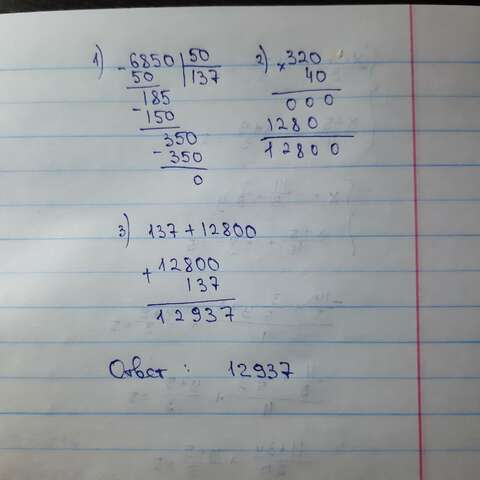 1) - 6850 | 50
50 | 137
185
- 150
350
- 350
0
2) × 320
40
000
1280
12800
3) 137 + 12800
+ 12800
137
12937
Ответ : 12937